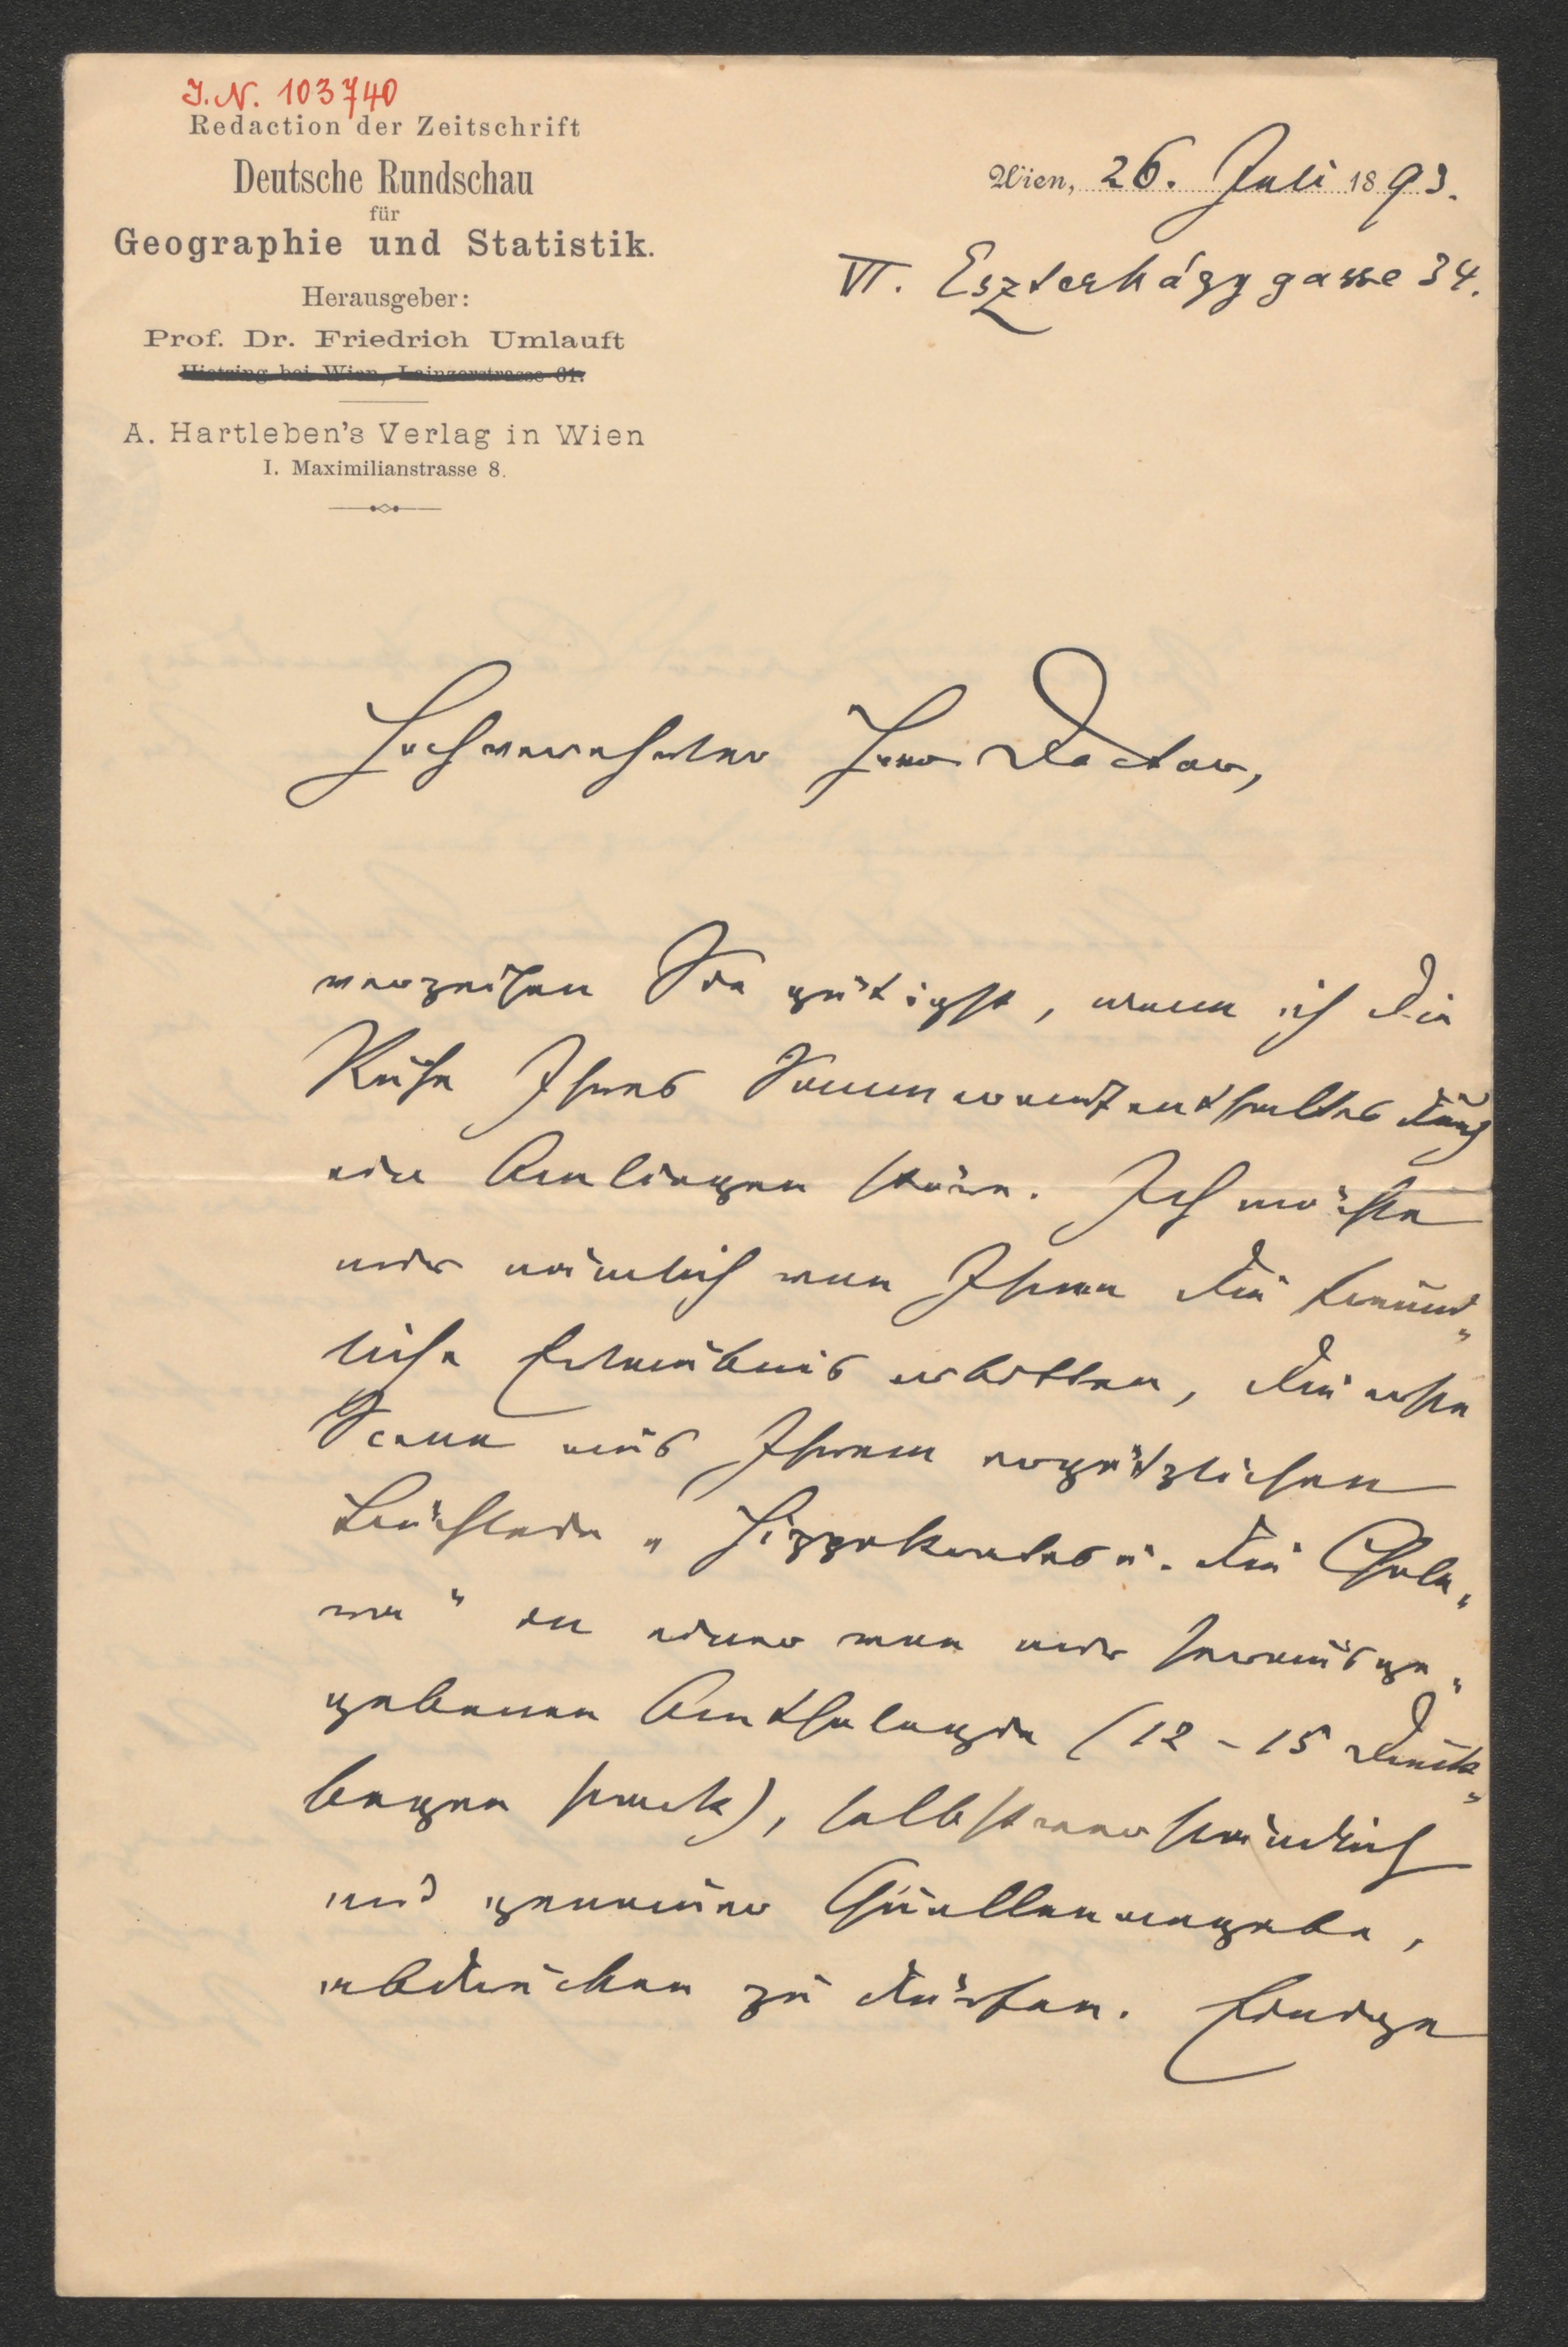 J.N. 103740
Redaction der Zeitschrift
Deutsche Rundschau
für
Geographie und Statistik.
Herausgeber:
Prof. Dr. Friedrich Umlauft
Hietzing bei Wien, Lainzerstrasse 61.
A. Hartleben's Verlag in Wien
I. Maximilianstrasse 8.
Wien, 26. Juli 1893.
VI. Eszterházygasse 34.
Hochverehrter Herr Doctor,
verzeihen Sie gütigst, wenn ich die
Ruhe Ihres Sommeraufenthaltes durch
ein Anliegen störe. Ich möchte
mir nämlich von Ihnen die freund„
liche Erlaubnis erbitten, die erste
Scene aus Ihrem ergötzlichen
Büchlein „Hippokrates u. die Chole„
ra“ in einer von mir herausge„
gebenen Anthologie (12-15 Druck„
bogen stark), selbstverständlich
mit genauer Quellenangabe,
abdrucken zu dürfen. Einige